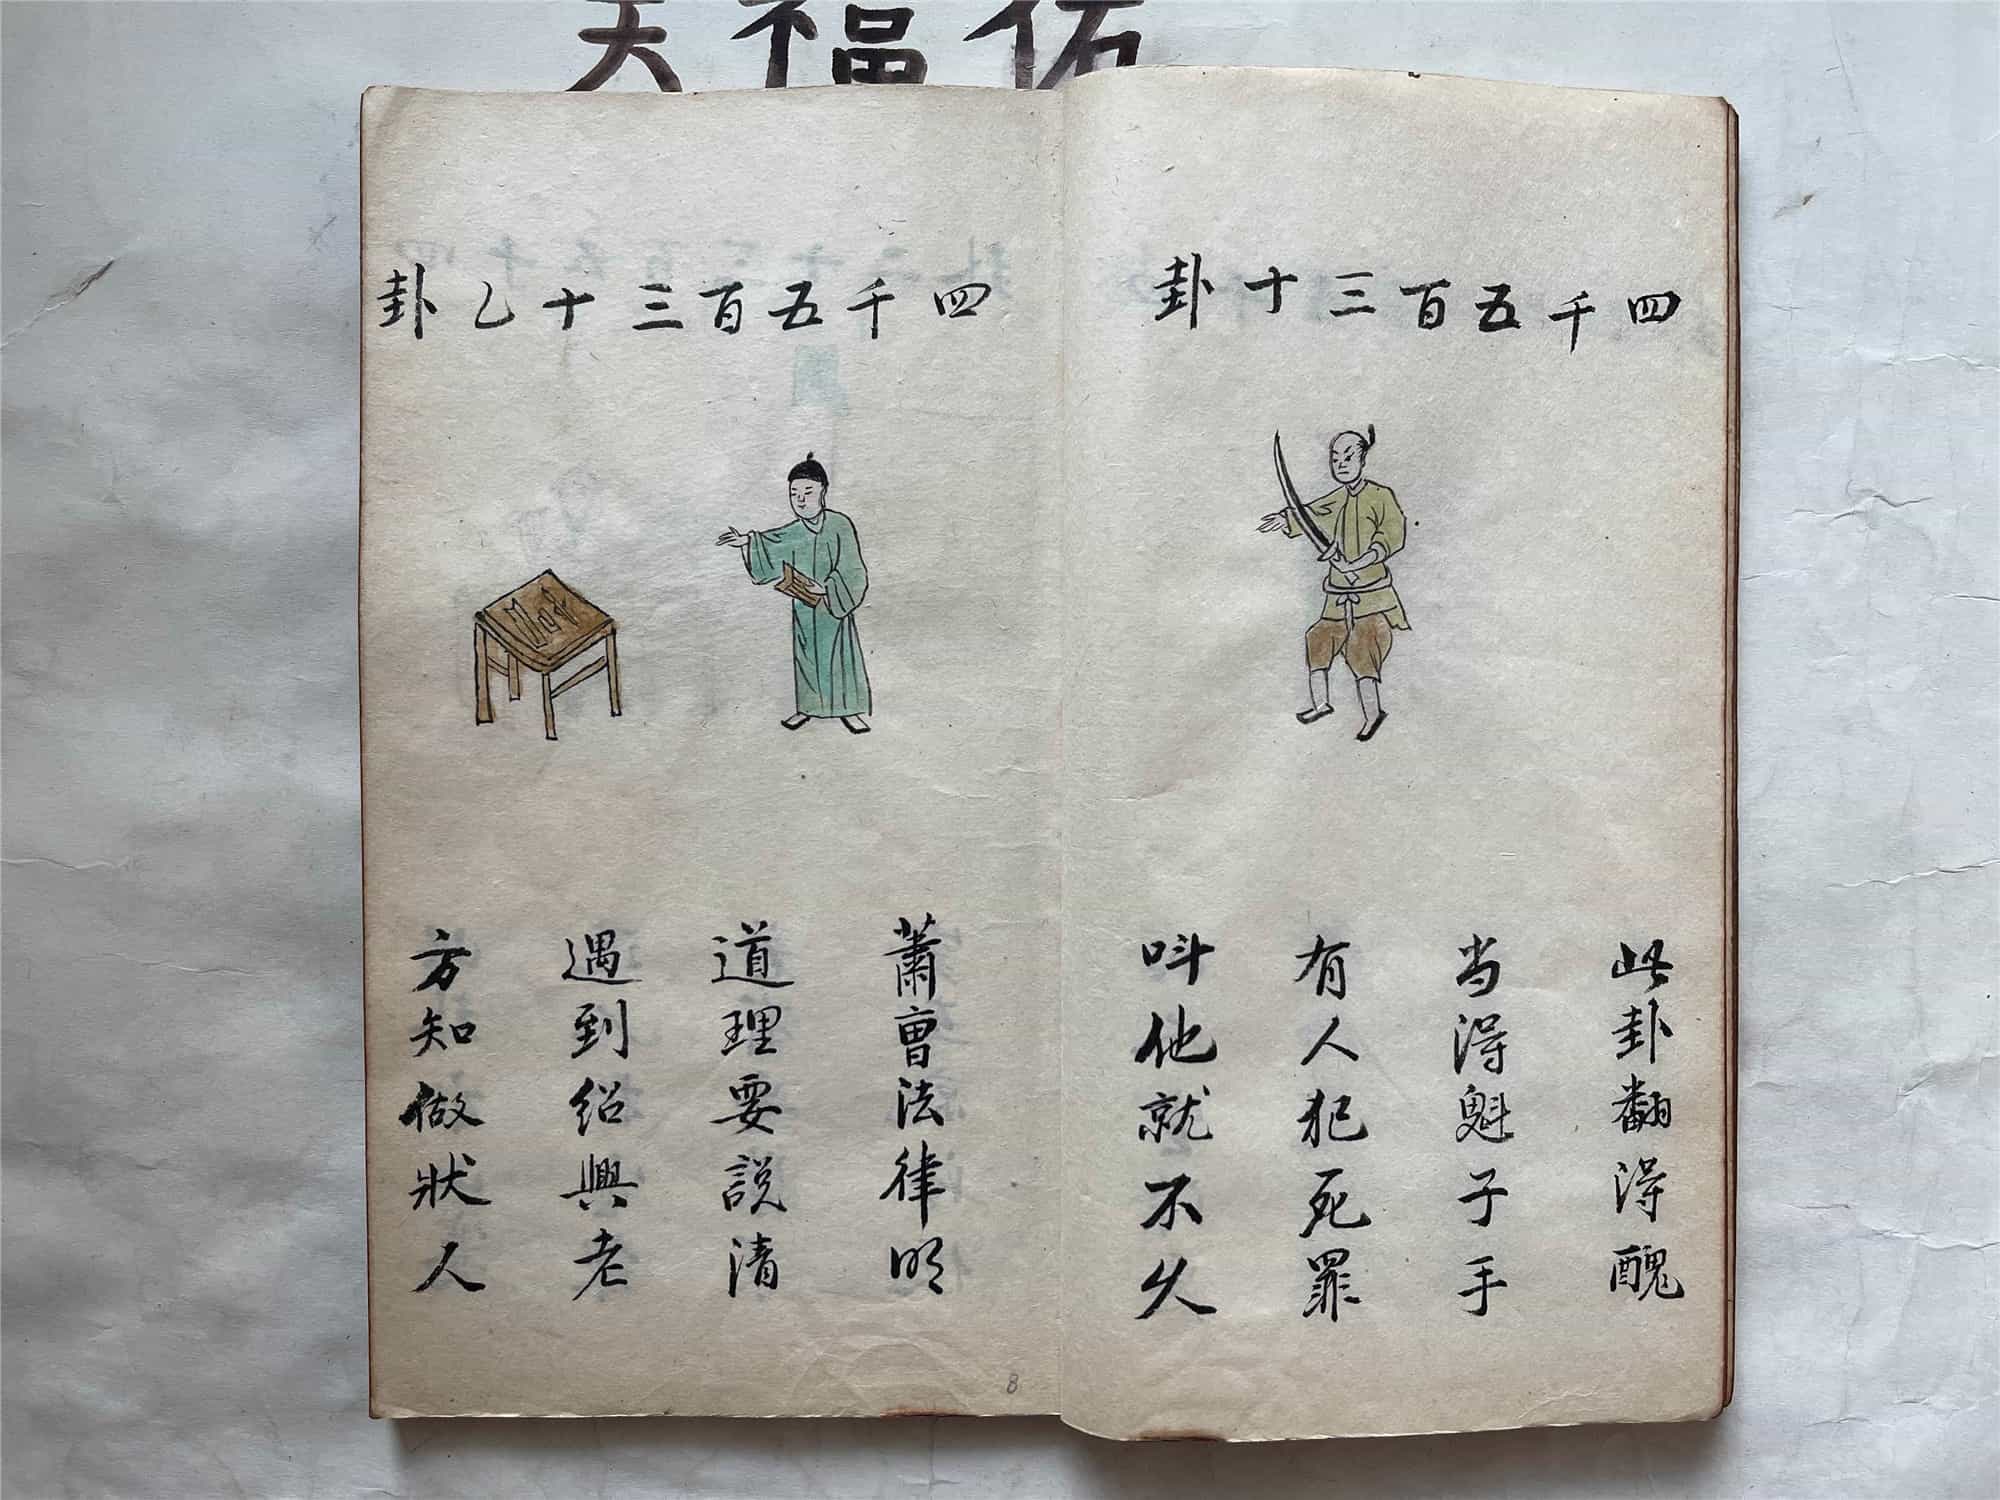 福佑
四千五百三十卦
此卦翻淂醜
当淂魁子手
有人犯死罪
呌他就不久
四千五百三十乙卦
蕭曺法律明
道理要說清
遇到绍興老
方知做狀人
8